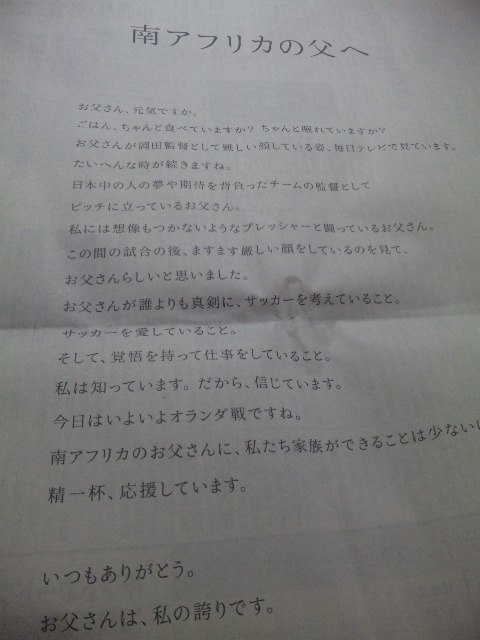 南アフリカの父へ
お父さん、元気ですか。
ごはん、ちゃんと食べていますか？ ちゃんと眠れていますか？
お父さんが岡田監督として難しい顔している姿、毎日テレビで見ています。
たいへんな時が続きますね。
日本中の人の夢や期待を背負ったチームの監督として
ピッチに立っているお父さん。
私には想像もつかないようなプレッシャーと闘っているお父さん。
この間の試合の後、ますます厳しい顔をしているのを見て、
お父さんらしいと思いました。
お父さんが誰よりも真剣に、サッカーを考えていること。
サッカーを愛していること。
そして、覚悟を持って仕事をしていること。
私は知っています。だから、信じています。
今日はいよいよオランダ戦ですね。
南アフリカのお父さんに、私たち家族ができることは少ない
精一杯、応援しています。
いつもありがとう。
お父さんは、私の誇りです。